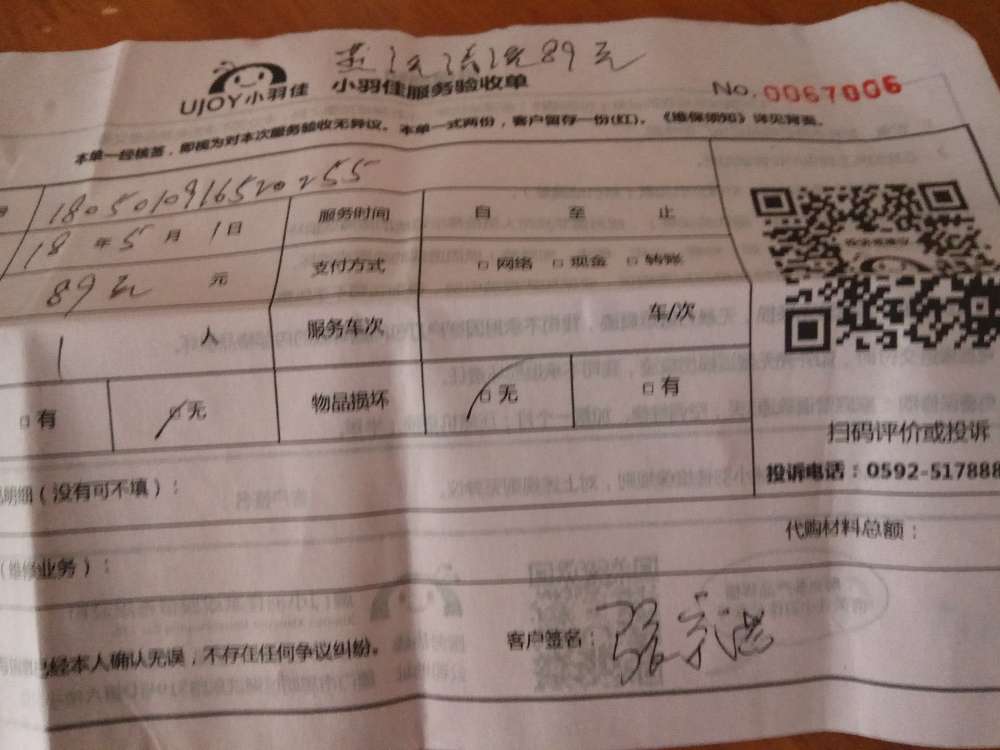 洗清洗89元
UJOY小羽佳 小羽佳服务验收单 No. 0067006
本单一经核签,即视为对本次服务验收无异议。本单一式两份,客户留存一份(红)。《维保须知》详见背面。
1805010916520255 服务时间 自 至 止
18年5月1日 支付方式 □网络 □现金 □转账
89元 元
1 人 服务车次 车/次
□有 □无 物品损坏 □无 □有
扫码评价或投诉
明细(没有可不填):
投诉电话:0592-517888
代购材料总额:
(维修业务):
客户签名:
已经本人确认无误,不存在任何争议纠纷。